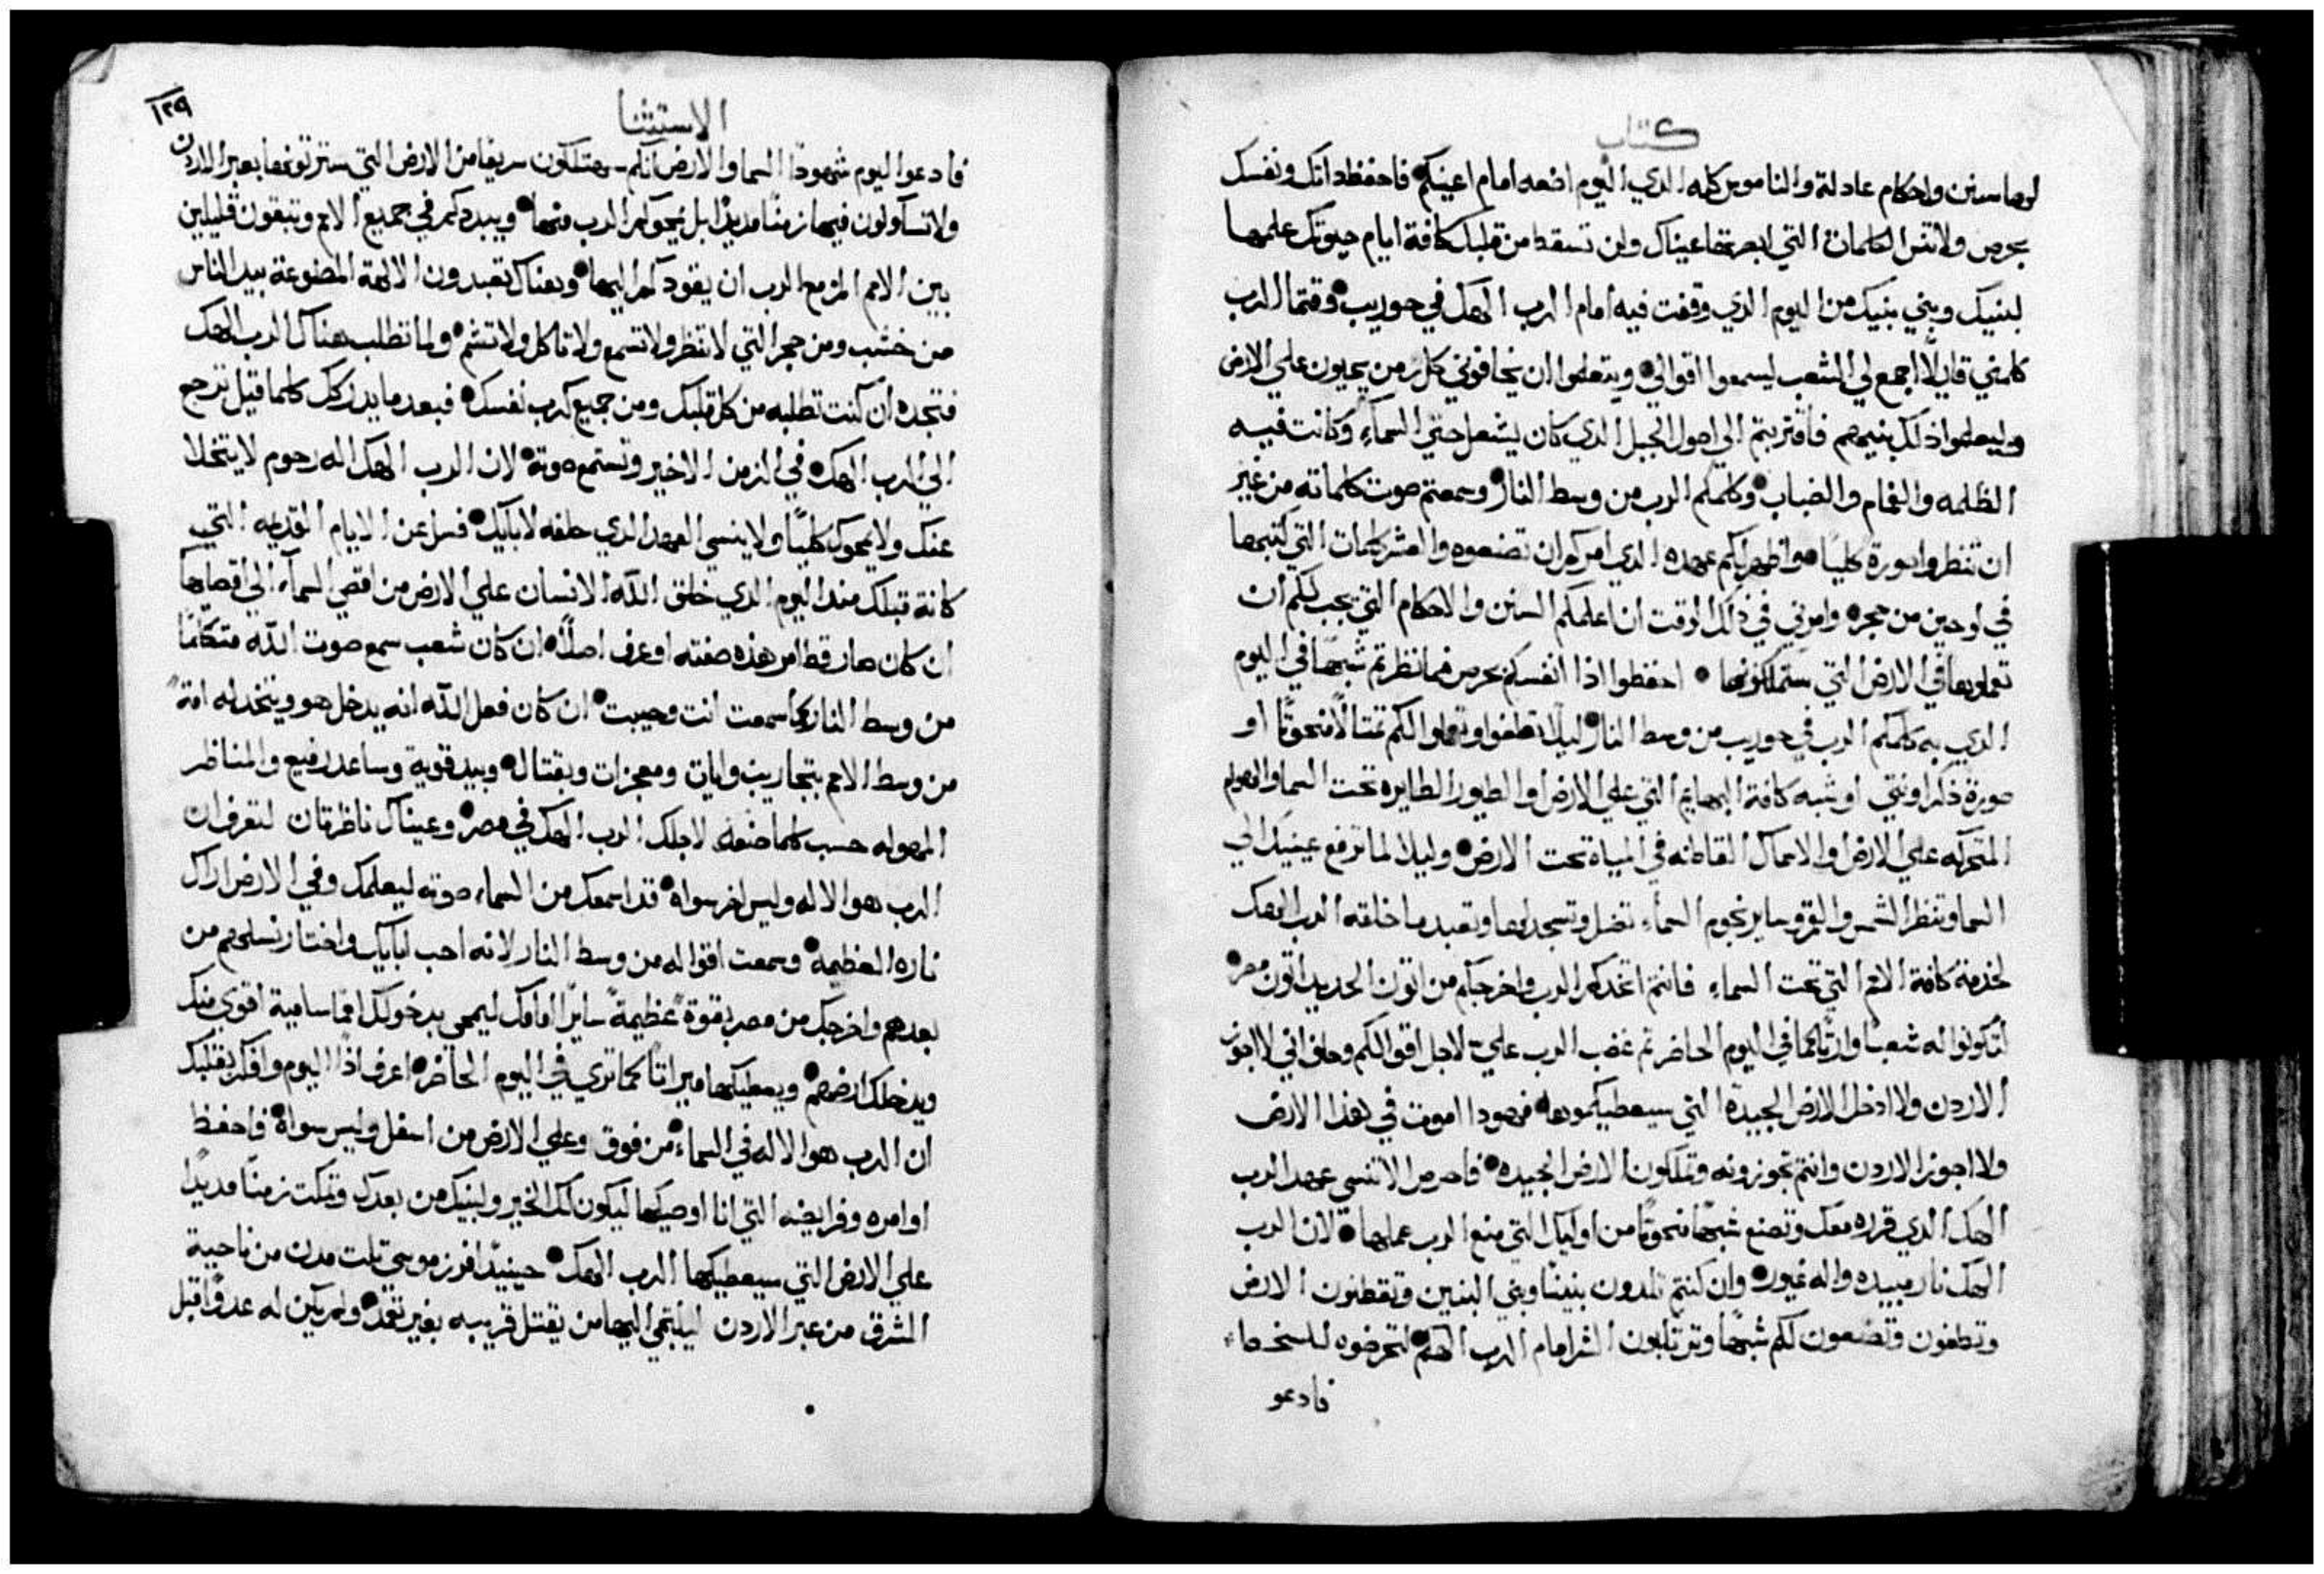 كتاب
لها سنن واحكام عادلة والناموس كله الدي اليوم اضعه امام اعينكم فاحفظ داتك ونفسك
بحرص ولا تنس الكلمات التي ابصرتها عيناك ولن تسقط من قلبك كافة ايام حيوتك علمها
لبنيك وبني بنيك من اليوم الذي وقفت فيه امام الرب الهك في حوريب وقتما الرب
كلمني قايلًا اجمع لي الشعب ليسمعوا اقوالي ويتعلموا ان يخافوني كل زمن يحيون علي الارض
وليعلموا ذلك بنيهم فاقتربتم الي اصول الجبل الدي كان يشعل حتي السماء وكانت فيه
الظلمه والغمام والضباب وكلمكم الرب من وسط النار وسمعتم صوت كلماته من غير
ان تنظروا صورة كليًا واظهر لكم عهده الدي امركم ان تصنعوه والعشر كلمات التي كتبها
في لوحين من حجره وامرني في ذلك الوقت ان اعلمكم السنن والاحكام التي يجب لكم ان
تعملوها في الارض التي ستملكونها احفظوا اذا انفسكم بحرص فما نظرتم شبهًا في اليوم
الدي به كلمكم الرب في حوريب من وسط النار ليلا تطغوا وتعملوا لكم تمثالًا منحوتًا او
صورة ذكر او نتي او شبه كافة البهايم التي علي الارض او الطيور الطايره تحت السما والهوام
المتحركه علي الارض او الاسماك القاطنه في المياة تحت الارض وليلا لما ترفع عينيك الي
السما وتنظر الشمس والقمر وساير نجوم السماء تضل وتسجد لها وتعبد ما خلقه الرب الهك
لخدمة كافة الامم التي تحت السماء فانتم اتخدكم الرب واخرجكم من اتون الحديد اتون مصر
لتكونوا له شعبًا وارثًا كما في اليوم الحاضر تم غضب الرب علي لاجل اقوالكم وحلف اني لا اجوز
الاردن ولا ادخل الارض الجيدة التي سيعطيكموها فهودا اموت في هذا الارض
ولا اجوز الاردن وانتم تجوزونه وتملكون الارض الجيده فاحرص الا تنسي عهد الرب
الهك الدي قرره معك وتصنع شبهًا منحوتًا من اوليك التي منع الرب عملها لان الرب
الهك نار مبيده واله غيور وان كنتم تلدون بنينًا وبني البنين وتقطنون الارض
وتطغون وتصنعون لكم شبهًا وترتكبون الشر امام الرب الهكم لتحرضوه للسخط
فادعو
١٢٩
الاستثنا
فادعوا اليوم شهودًا السما والارض انكم ستهلكون سريعًا من الارض التي سترثونها بعبر الاردن
ولا تسكنون فيها زمنًا مديدًا بل يمحوكم الرب منها ويبددكم في جميع الامم وتبقون قليلين
بين الامم المزمع الرب ان يقودكم اليها وهناك تعبدون الالهة المصنوعة بيد الناس
من خشب ومن حجر التي لا تنظر ولا تسمع ولا تاكل ولا تشم ولما تطلب هناك الرب الهك
فتجده ان كنت تطلبه من كل قلبك ومن جميع كرب نفسك فبعد ما يدركك كلما قيل ترجع
الي الرب الهك في الزمن الاخير وتستمع صوته لان الرب الهك اله رحوم لا يتخلا
عنك ولا يمحوك كليًا ولا ينسي العهد الدي حلفه لابايك فسل عن الايام القديمه التي
كانة قبلك مند اليوم الدي خلق الله الانسان علي الارض من اقصي السماء الي اقصاها
ان كان صار قط امر هذه صفته او عرف اصلًا ان كان شعب سمع صوت الله متكلمًا
من وسط النار كما سمعت انت وحييت ان كان فعل الله انه يدخل هو ويتخد له امة
من وسط الامم بتجاريب وايات ومعجزات وبقتال وبيد قوية وساعد رفيع والمناظر
المهوله حسب كلما صنعه لاجلك الرب الهك في مصر وعيناك ناظرتان لتعرف ان
الرب هو الاله وليس اخر سواه قد اسمعك من السماء صوته ليعلمك وفي الارض اراك
ناره العظيمة وسمعت اقواله من وسط النار لانه احب ابايك واختار نسلهم من
بعدهم واخرجك من مصر بقوة عظيمة سايرًا امامك ليمحي بدخولك امما سامية اقوي منك
ويدخلك ارضهم ويعطيكها ميراثا كما تري في اليوم الحاضر اعرف اذًا اليوم وافكر بقلبك
ان الرب هو الاله في السماء من فوق وعلي الارض من اسفل وليس سواه فاحفظ
اوامره وفرايضه التي انا اوصيكها ليكون لك الخير ولبنيك من بعدك وتمكت زمنًا مديدًا
علي الارض التي سيعطيكها الرب الهك حينيد افرز موسي تلت مدن من ناحية
المشرق من عبر الاردن ليلتجي اليها من يقتل قريبه بغير تعمد ولم يكن له عدوًا قبل